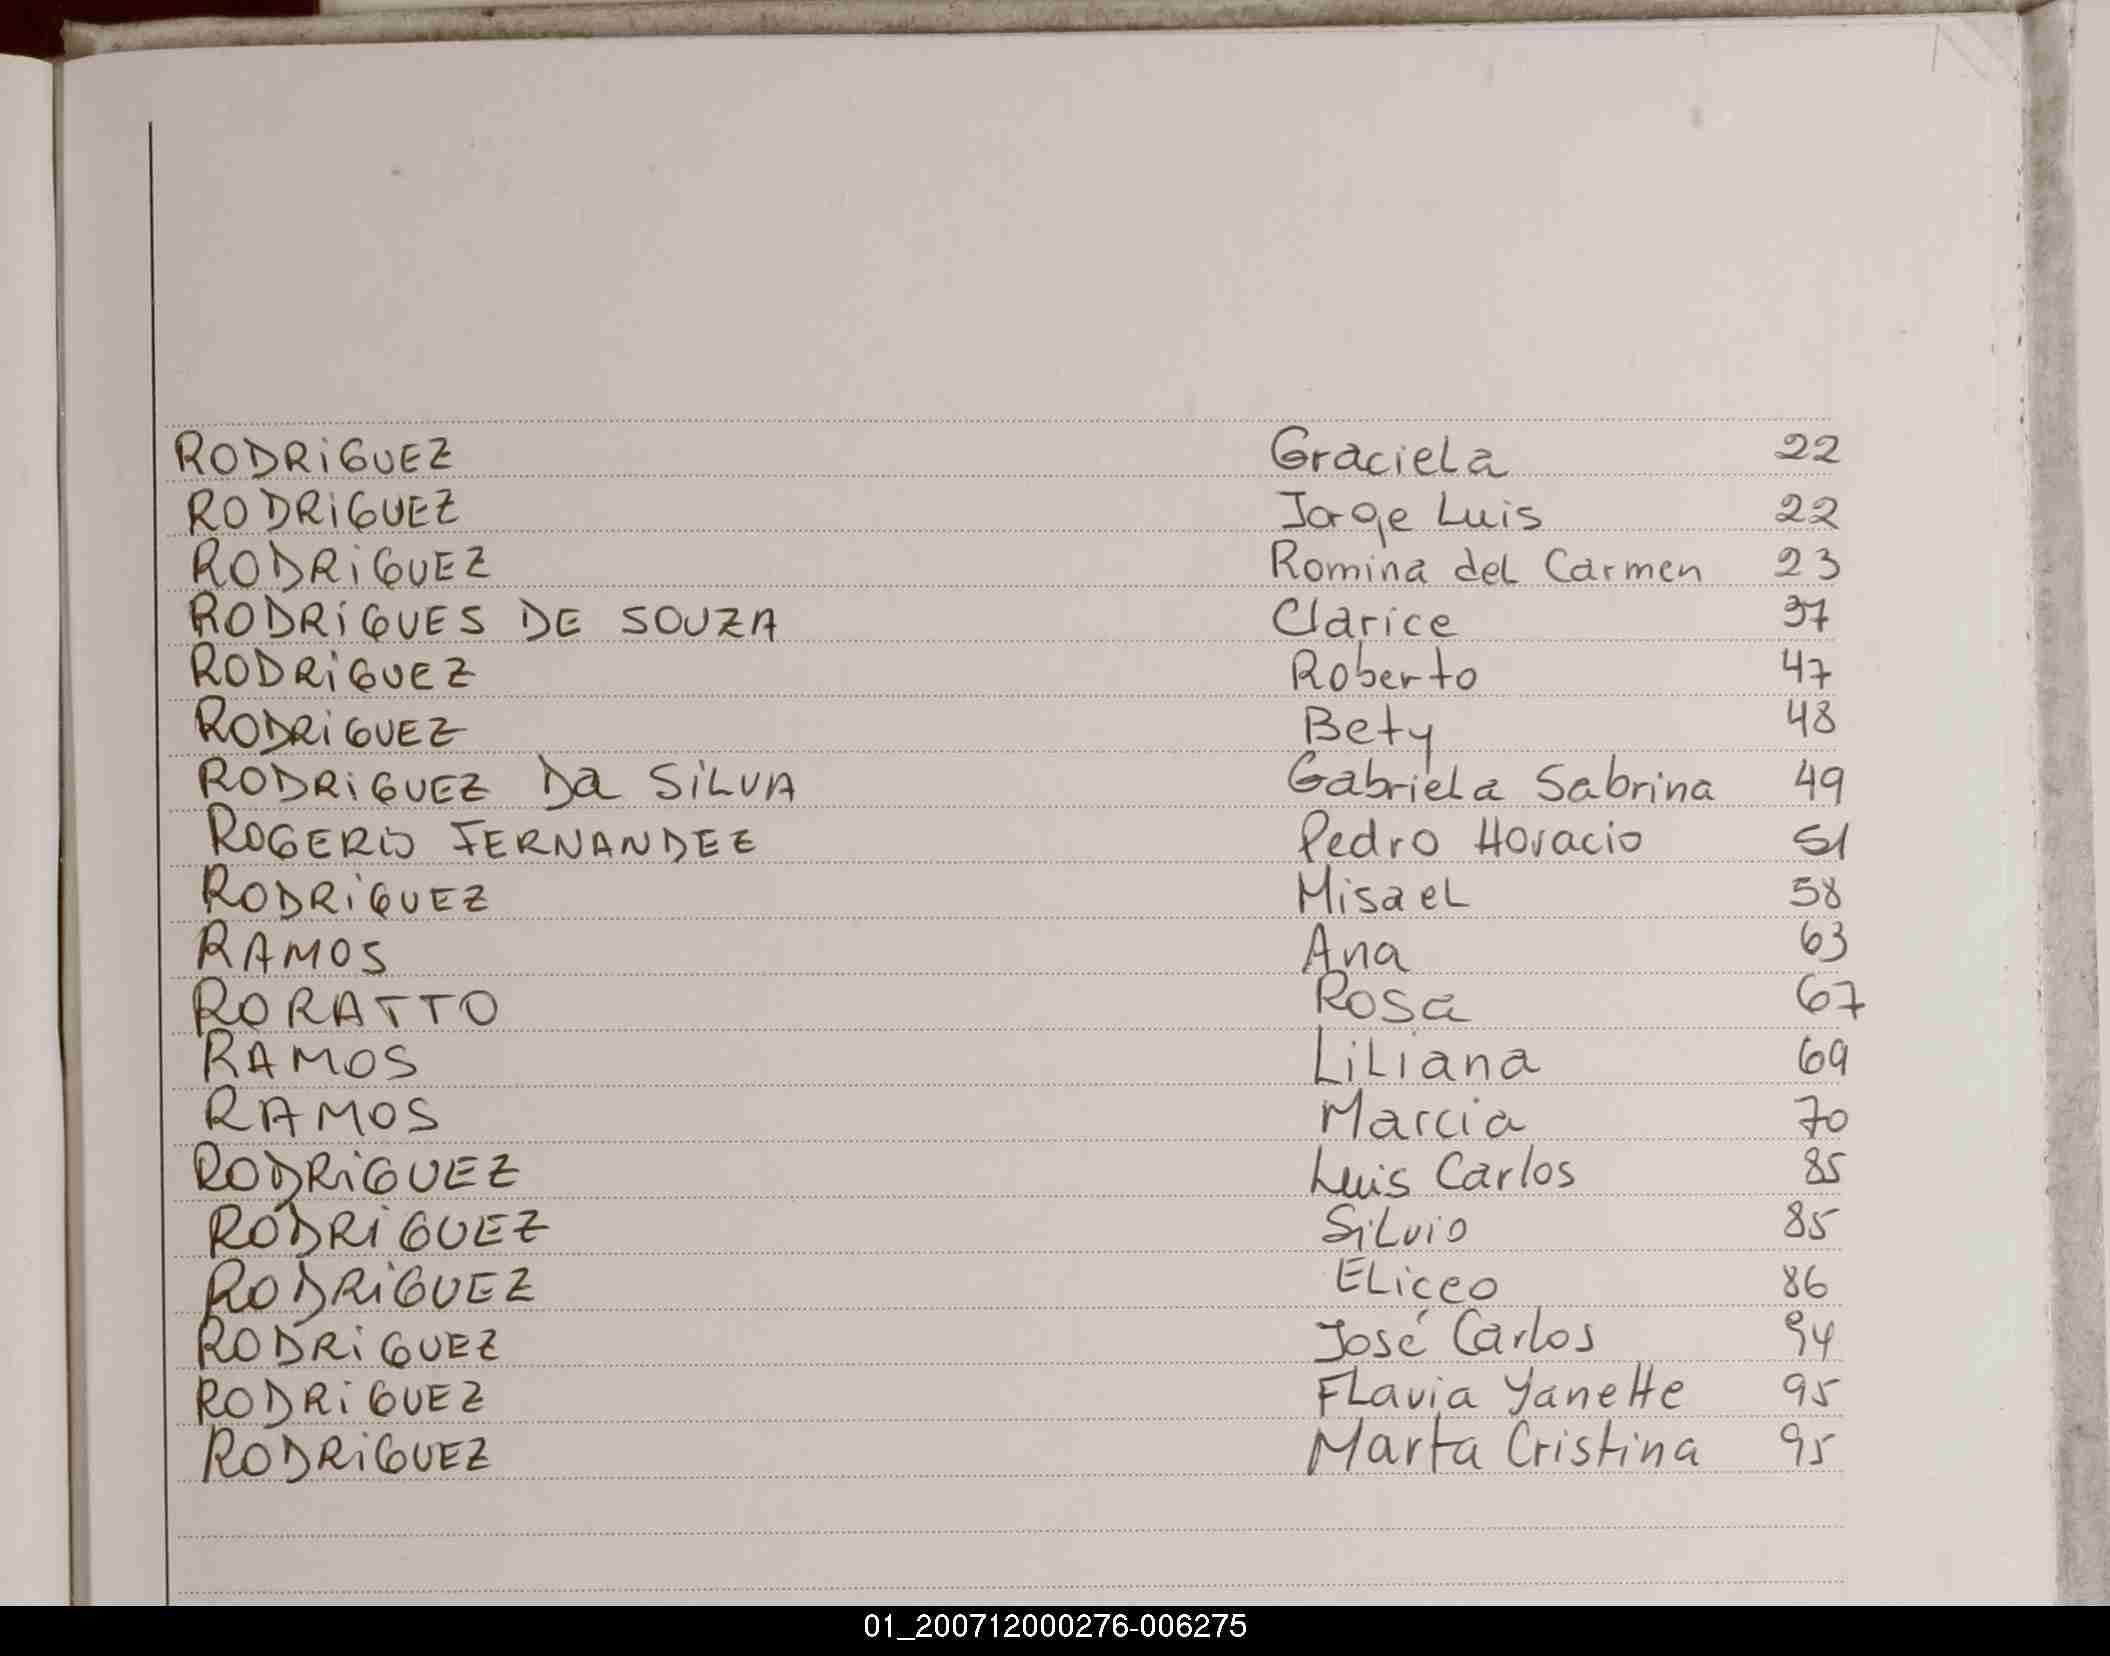 RODRiGUEZ Graciela 22
RODRiGUEZ Jorge Luis 22
RODRiGUEZ Romina del Carmen 23
RODRiGUES DE SOUZA Clarice 37
RODRiGUEZ Roberto 47
RODRiGUEZ Bety 48
RODRiGUEZ Da SiLVA Gabriela Sabrina 49
ROGERIO FERNANDEZ Pedro Horacio 51
RODRiGUEZ Misael 58
RAMOS Ana 63
RORATTO Rosa 67
RAMOS Liliana 69
RAMOS Marcia 70
RODRiGUEZ Luis Carlos 85
RODRiGUEZ Silvio 85
RODRiGUEZ Eliceo 86
RODRiGUEZ José Carlos 94
RODRiGUEZ Flavia Yanette 95
RODRiGUEZ Marta Cristina 95
01_200712000276-006275